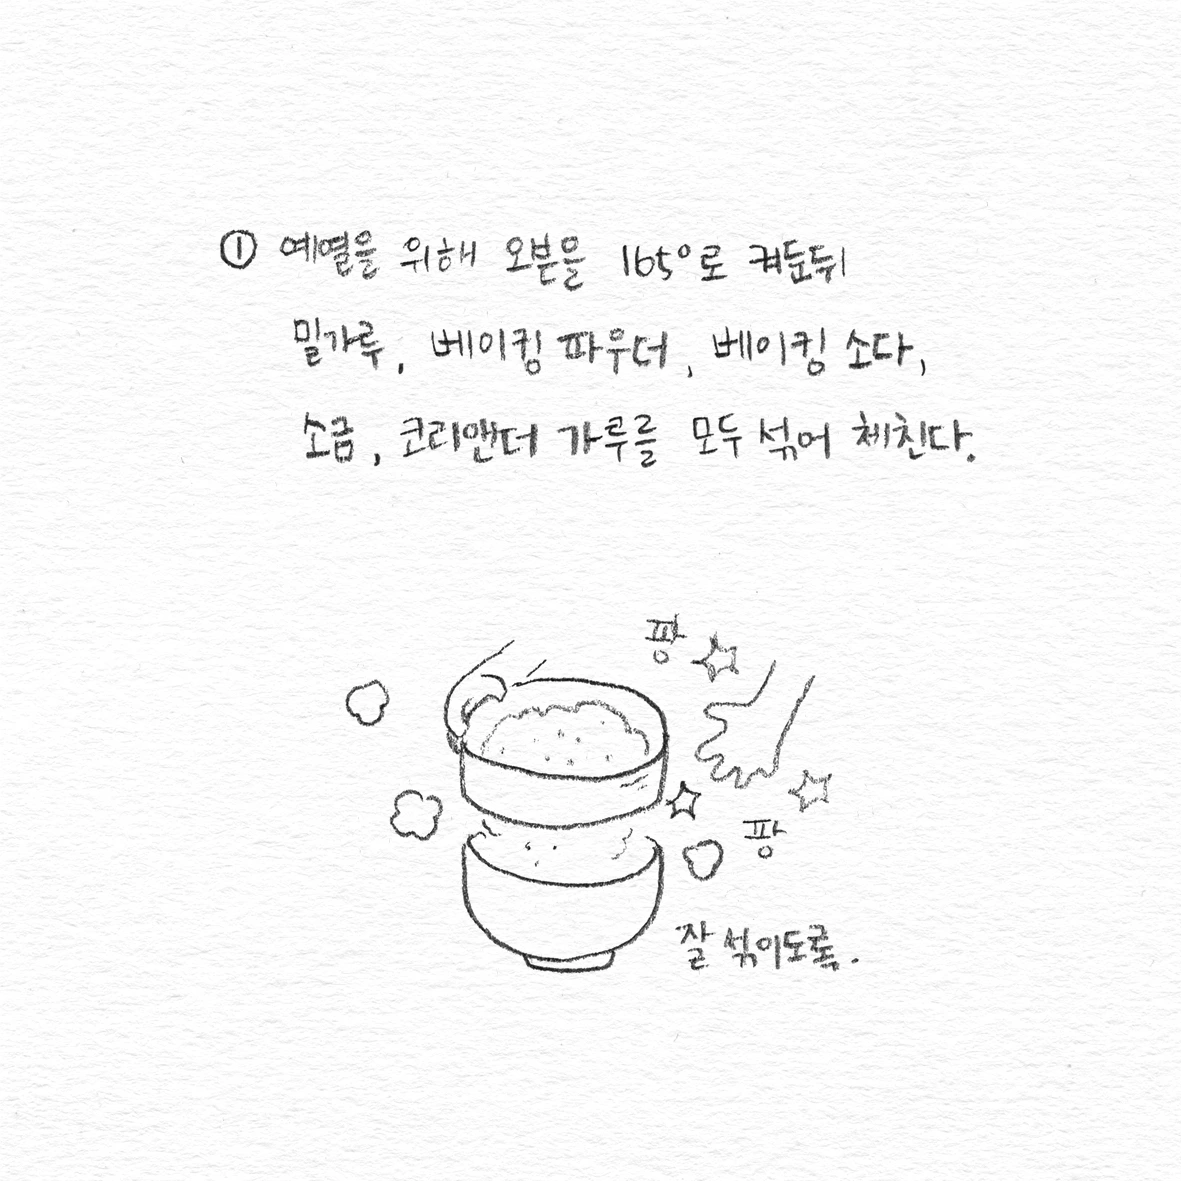 ① 예열을 위해 오븐을 165°로 켜둔뒤
밀가루, 베이킹 파우더, 베이킹 소다,
소금, 코리앤더 가루를 모두 섞어 체친다.
팡
팡
잘 섞이도록.